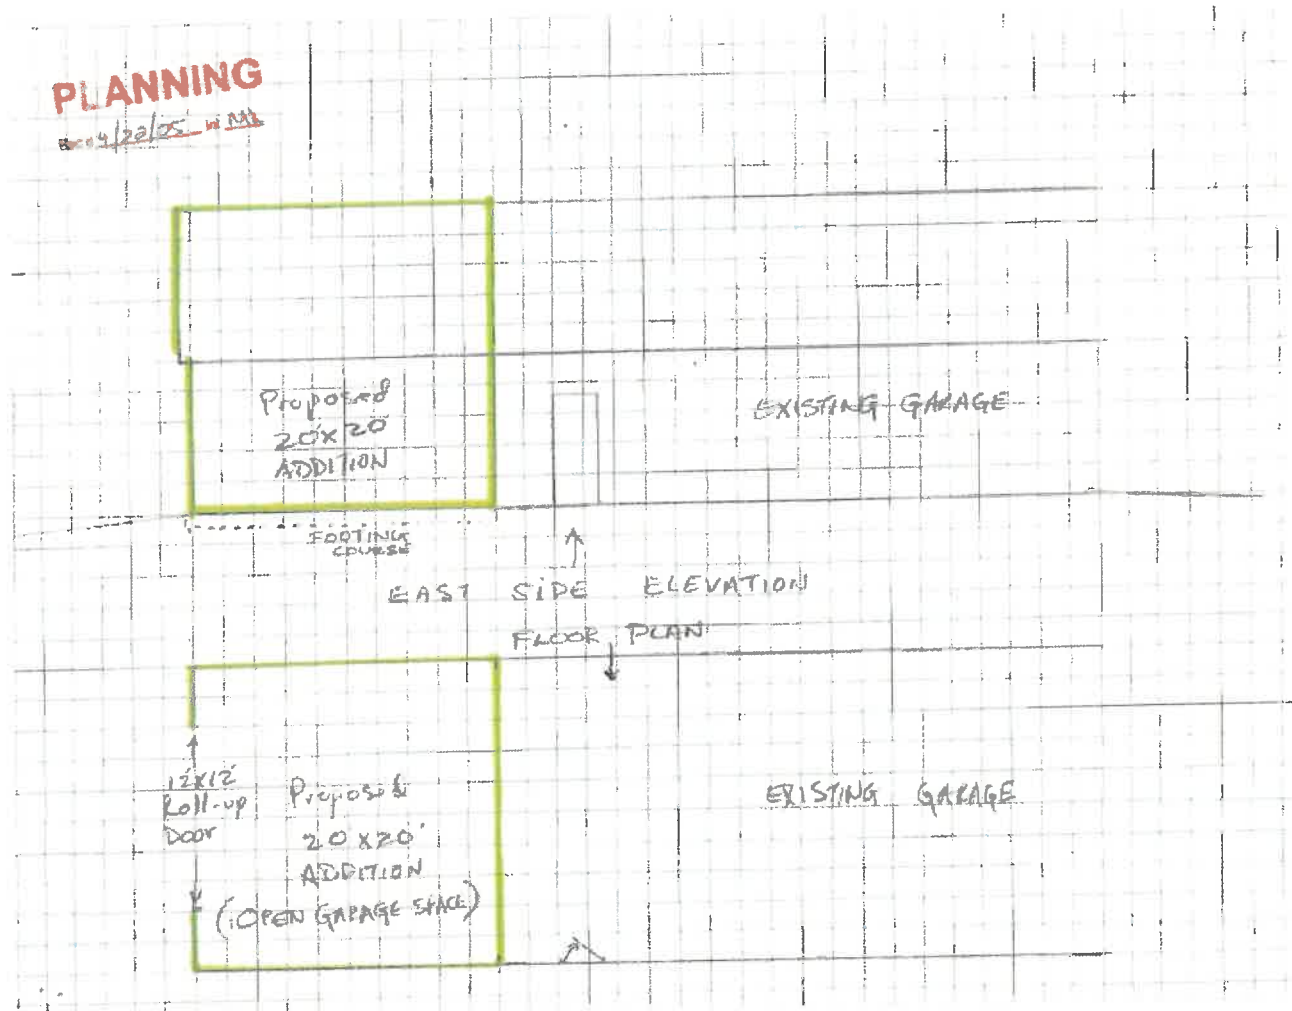 PLANNING
4/20/25
Proposed
20'x20'
ADDITION
EXISTING GARAGE
FOOTING
COURSE
EAST SIDE ELEVATION
FLOOR PLAN
12'x12'
Roll-up
Door
Proposed
20x20'
ADDITION
(OPEN GARAGE SPACE)
EXISTING GARAGE